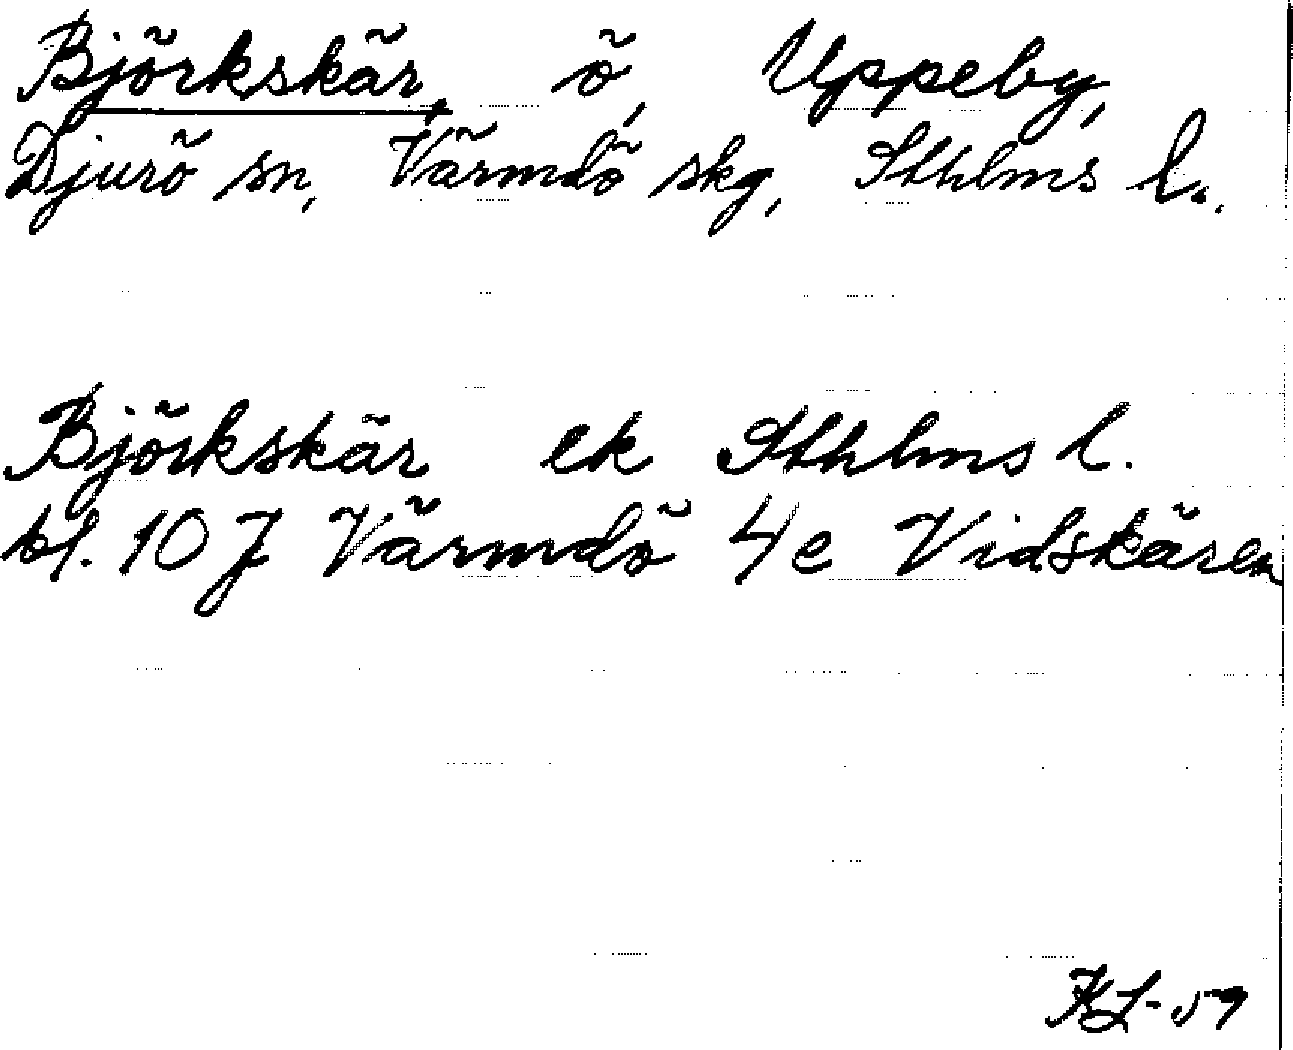 Björkskär, ö, Uppeby,
Djurö sn, Värmdö skg, Sthlms l.
Björkskär ek Sthlms l.
bl. 10 J Värmdö 4e Vidskären
KL-59